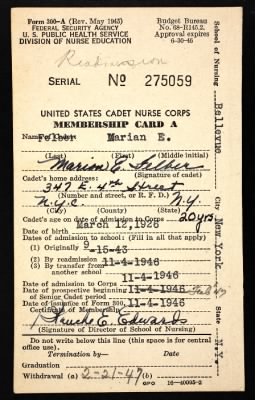 Form 300-A (Rev. May 1945)
FEDERAL SECURITY AGENCY
U. S. PUBLIC HEALTH SERVICE
DIVISION OF NURSE EDUCATION
Budget Bureau
No. 68-R145.2.
Approval expires
6-30-46
Readmission
SERIAL No 275059
UNITED STATES CADET NURSE CORPS
MEMBERSHIP CARD A
Name of Cadet: Felber Marian E.
(Last) (First) (Middle initial)
Marian E. Felber
Cadet's home address: (Signature of cadet)
347 E. 4th Street
(Number and street, or R. F. D.)
N.Y.C. N.Y.
(City) (County) (State)
Cadet's age on date of admission to Corps 20 yrs
Date of birth March 12, 1926
Dates of admission to school: (Fill in all that apply)
(1) Originally 9-15-43
(2) By readmission 11-4-1946
(3) By transfer from another school 11-4-1946
Date of admission to Corps 11-4-1946
Date of prospective beginning of Senior Cadet period 11-4-1946
Date of issuance of Form 300, Certificate of Membership 11-4-1946
Blanche E. Edwards
(Signature of Director of School of Nursing)
Do not write below this line (this space is for central office use).
Termination by— Date
Graduation
Withdrawal (a) 2-21-47 (b)
GPO 16—40095-2
School of Nursing Bellevue
City New York
State N.Y.